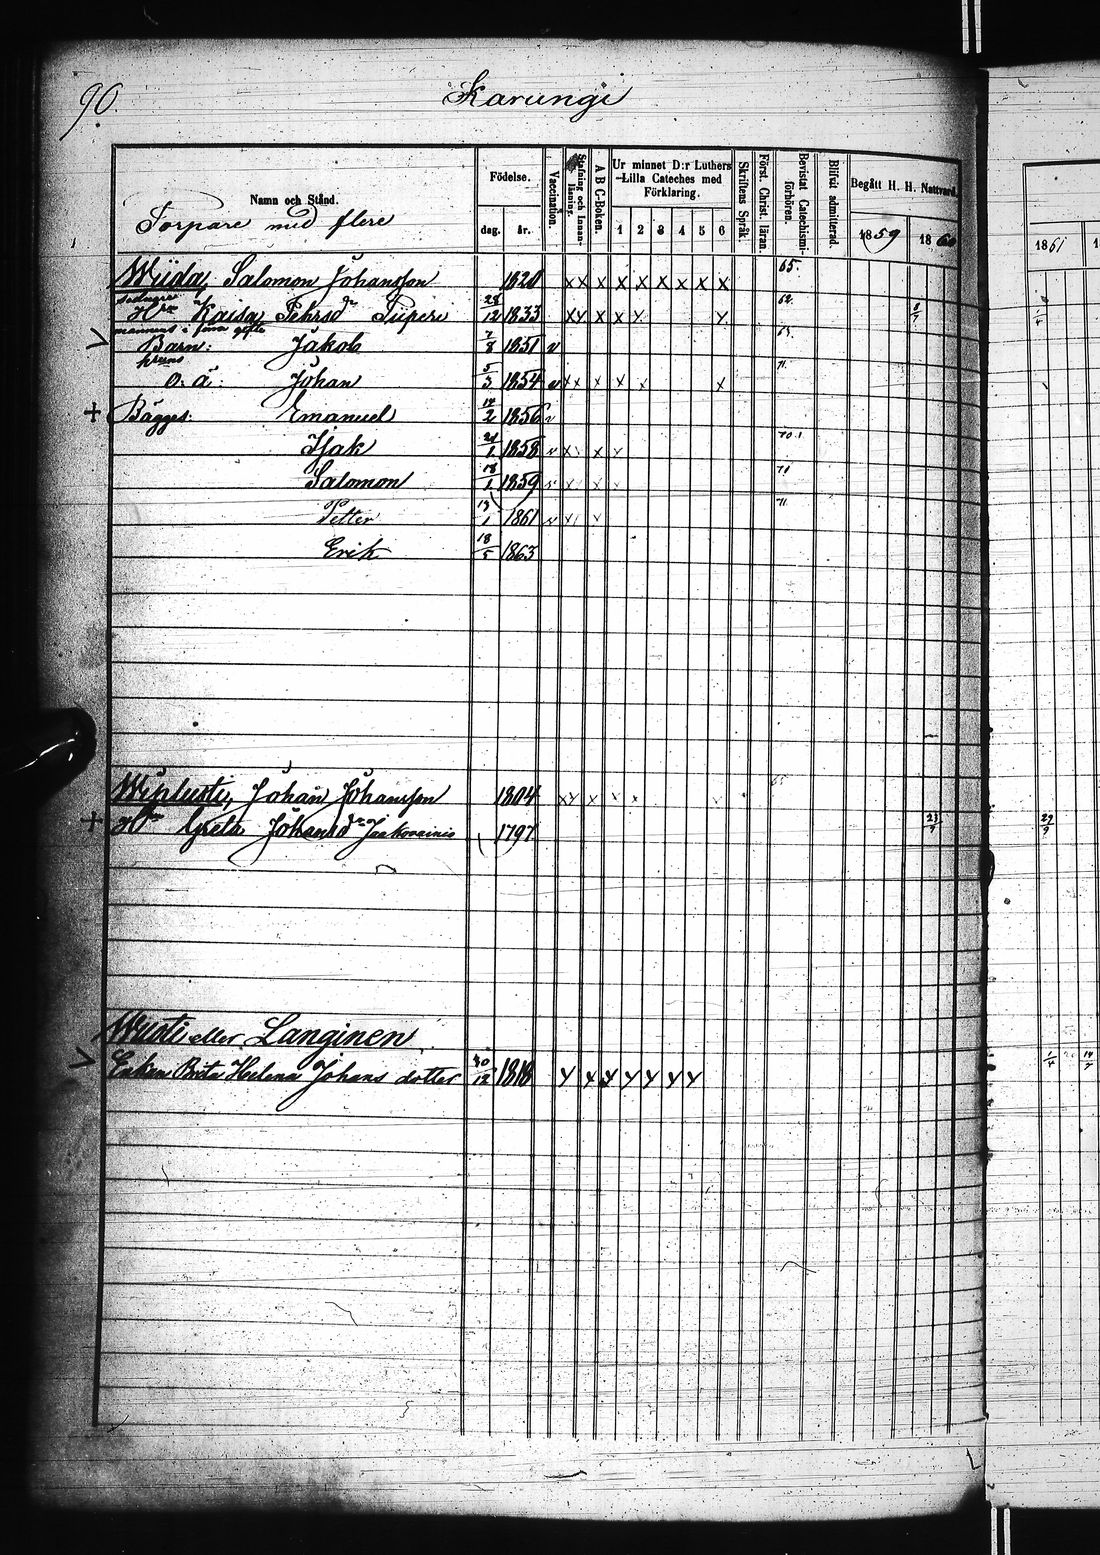 90.
Karungi
Namn och Stånd.
Torpare med flere
Födelse.
dag. år.
Vaccination.
Stafning och Innanläsning.
A B C-Boken.
Ur minnet D:r Luthers Lilla Cateches med Förklaring.
1 2 3 4 5 6
Skriftens Språk.
Först. Christ. läran.
Bevistat Catechismiförhören.
Blifvit admitterad.
Begått H. H. Nattvard.
1859 1860
1861
Wiida, Salomon Johansson 1820 x x x x x x x x x 65.
Hru Kaisa Pehrsdr Piiperi 28/12 1833 x y x x y y 62.
Barn: Jakob 7/8 1851 v 63.
o. ä: Johan 5/3 1854 v x x x x x x 71.
+ Bägges: Emanuel 14/2 1856 v
Isak 21/1 1858 v x x y 70
Salomon 18/1 1859
Petter 13/1 1861 71.
Erik 18/5 1863
Johan Johansson 1804 x y x 65
+ Hru Greta Johansdr Jaakovainio 1797 23/9 29/9
Wuoti eller Langinen
Enkan Brita Helena Johans dotter 30/12 1818 y y y y y y y 1/4